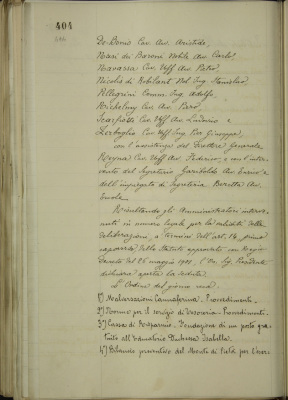 404
De Bonis Cav. Avv. Aristide,
Nasi dei Baroni Nobile Avv. Carlo,
Navassa Cav. Uff. Avv. Pietro,
Nicolis di Robilant Nob. Ing. Stanislao,
Pellegrini Comm. Ing. Adolfo,
Cav. Avv.
Scarfiotti Cav. Uff. Avv. Ludovico e
Zerboglio Cav. Uff. Ing. Pier Giuseppe,
con l'assistenza del Direttore Generale
Cav. Uff. Avv. Federico, e con l'inter-
vento del Segretario Garibaldo Avv. e
dell'impiegato di Segreteria Beretta Avv.
Risultando gli Amministratori interve-
nuti in numero legale per la validità delle
deliberazioni, a termini dell'art. 14, primo
capoverso dello Statuto approvato con Regio
Decreto del 26 maggio 1901, l'On. Sig. Presidente
dichiara aperta la seduta.
L'Ordine del giorno reca:
1°) Malversazioni Cannaferina. Provvedimenti.
2°) Norme per il servizio di Tesoreria. Provvedimenti.
3°) Cassa di Risparmio. Fondazione di un posto gra-
tuito al Sanatorio Duchessa Isabella.
4°) Bilancio preventivo del Monte di Pietà per l'eser-